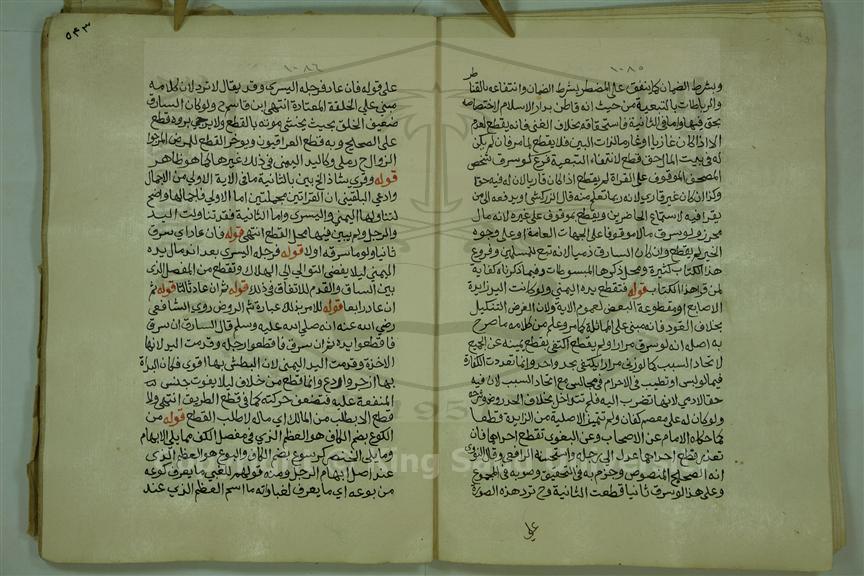 ١٠٨٥
وبشرط الضمان كما ينفق على المضطر بشرط الضمان وانتفاعه بالقناطر
والرباطات بالتبعية من حيث انه قاطن بدار الاسلام لاختصاصه
بحق فيها واما في الثانية فلاستحقاقه بخلاف الغني فانه يقطع لعدم
الا اذا كان غازيا او غارما لذات البين فلا يقطع لما مر فان لم يكن
له في بيت المال حق قطع لانتفاء التبعية فرع لو سرق شخص
المصحف الموقوف على القراءة لم يقطع اذا كان قاريا لان له فيه حقا
وكذا ان كان غير قاري لانه ربما تعلم منه قال الزركشي او يدفعه الى من
يقرا فيه لاستماع الحاضرين ويقطع بموقوف على غيره لانه مال
محرز ولو سرق مالا موقوفا على الجهات العامة او على وجوه
الخير لم يقطع وان كان السارق ذميا لانه تبع للمسلمين وفروع
هذا الكتاب كثيرة ومحل ذكرها المبسوطات وفيما ذكرناه كفاية
لمن قرا هذا الكتاب قوله فتقطع يده اليمنى ولو كانت اليد زايدة
الاصابع او مقطوعة البعض لعموم الاية ولان الغرض التنكيل
بخلاف القود فانه مبني على المماثلة كما مر وعلم من كلامه ما صرح
به اصله انه لو سرق مرارا ولم يقطع اكتفى بقطع يمينه عن الجميع
لاتحاد السبب كما لو زنى مرارا يكتفى بحد واحد وانما تعددت الكفارة
فيما لو لبس او تطيب في الاحرام في مجالس مع اتحاد السبب لان فيه
حقا لادمي لانها تصرف اليه فلم تتداخل بخلاف الحد
ولو كان له على معصم كفان ولم تتميز الاصلية من الزايدة قطعتا
كما حكاه الامام عن الاصحاب وعن البغوي تقطع احداهما فان
تعذر قطع احداهما عدل الى رجله واستحسنه الرافعي وقال النووي
انه الصحيح المنصوص وجزم به في التحقيق وصوبه في المجموع
وعلى هذا لو سرق ثانيا قطعت الثانية وح ترد هذه الصورة
على
١٠٨٦
٥٤٣
على قوله فان عاد فرجله اليسرى وقد يقال لا ترد لان كلامه
مبني على الخلقة المعتادة انتهى ابن قاسم ح ولو كان السارق
ضعيف الخلق بحيث يخشى موته بالقطع ولا يرجى بروه قطع
على الصحيح وبه قطع العراقيون ويوخر القطع للمرض المرجوا
الزوال ح رملي وكاليد اليمنى في ذلك غيرها كما هو ظاهر
قوله وقري شاذا الخ بين بالثانية ما في الاية الاولى من الاجمال
وادعى البلقيني ان القراتين مجملتين اما الاولى فلاجمالها واضح
لتناولها اليمنى واليسرى واما الثانية فقد تناولت اليد
والرجل ولم يبين فيها محل القطع انتهى قوله فان عاد اي سرق
ثانيا ولو ما سرقه اولا قوله فرجله اليسرى بعد اندمال يده
اليمنى ليلا يفضي التوالي الى الهلاك وتقطع من المفصل الذي
بين الساق والقدم للاتفاق في ذلك قوله ثم ان عاد ثالثا قوله ثم
ان عاد رابعا قوله للامر بذلك عبارة متن الروض روى الشافعي
رضي الله عنه انه صلى الله عليه وسلم قال السارق ان سرق
فاقطعوا يده ثم ان سرق فاقطعوا رجله وقدمت اليد لانها
الاخذة وقدمت اليد اليمنى لان البطش بها اقوى فكان البداة
بها ازجر واردع وانما قطع من خلاف ليلا يفوت جنس
المنفعة عليه فتضعف حركته كما في قطع الطريق انتهى ولا
قطع الا بطلب من المالك اي ماله لا طلب القطع قوله من
الكوع بضم الكاف هو العظم الذي في مفصل الكف مما يلي الابهام
وما يلي الخنصر كرسوع بضم الكاف والبوع هو العظم الذي
عند اصل ابهام الرجل ومنه قولهم للغبي ما يعرف كوعه
من بوعه اي ما يعرف لغباوته ما اسم العظم الذي عند